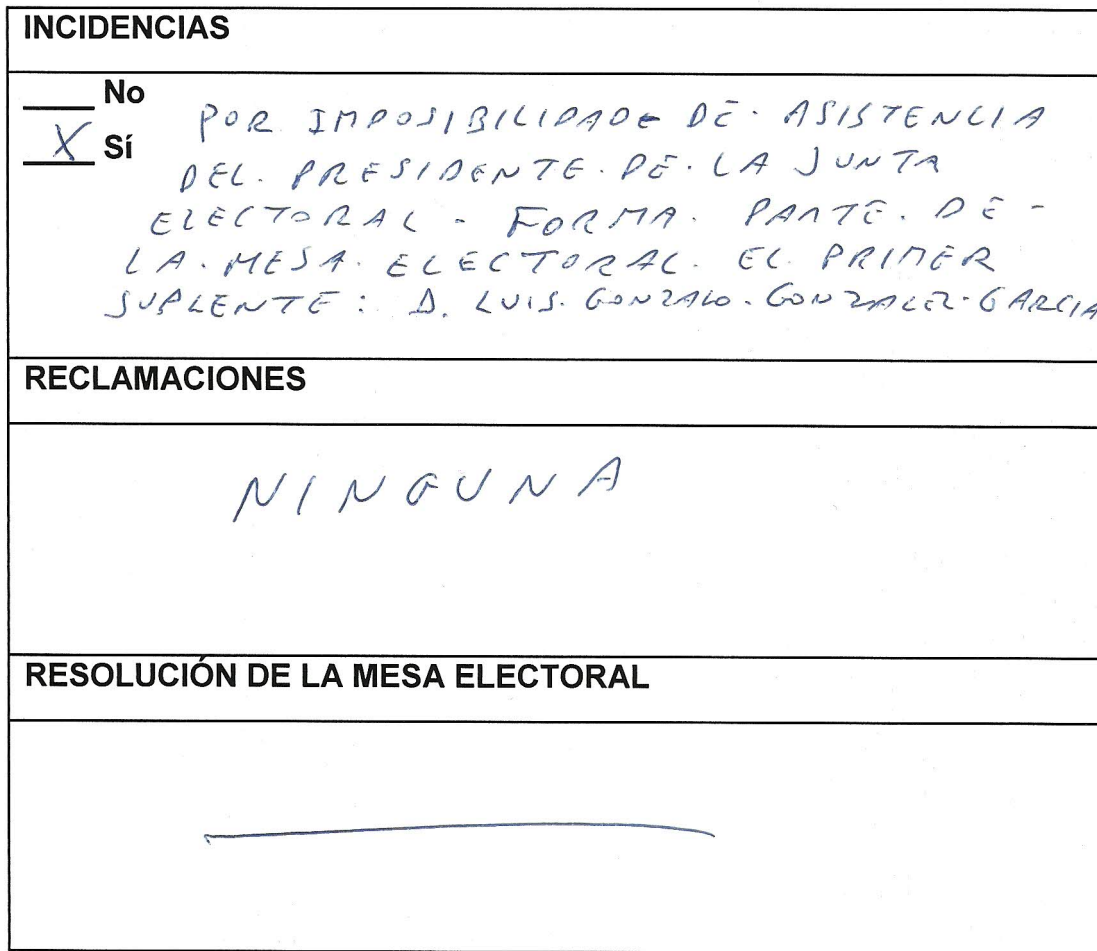 INCIDENCIAS
___ No
X Sí
POR IMPOSIBILIDADE DE. ASISTENCIA
DEL. PRESIDENTE. DE. LA JUNTA
ELECTORAL - FORMA. PARTE. DE -
LA. MESA. ELECTORAL. EL PRIMER
SUPLENTE: D. LUIS. GONZALO. GONZALEZ. GARCIA
RECLAMACIONES
NINGUNA
RESOLUCIÓN DE LA MESA ELECTORAL